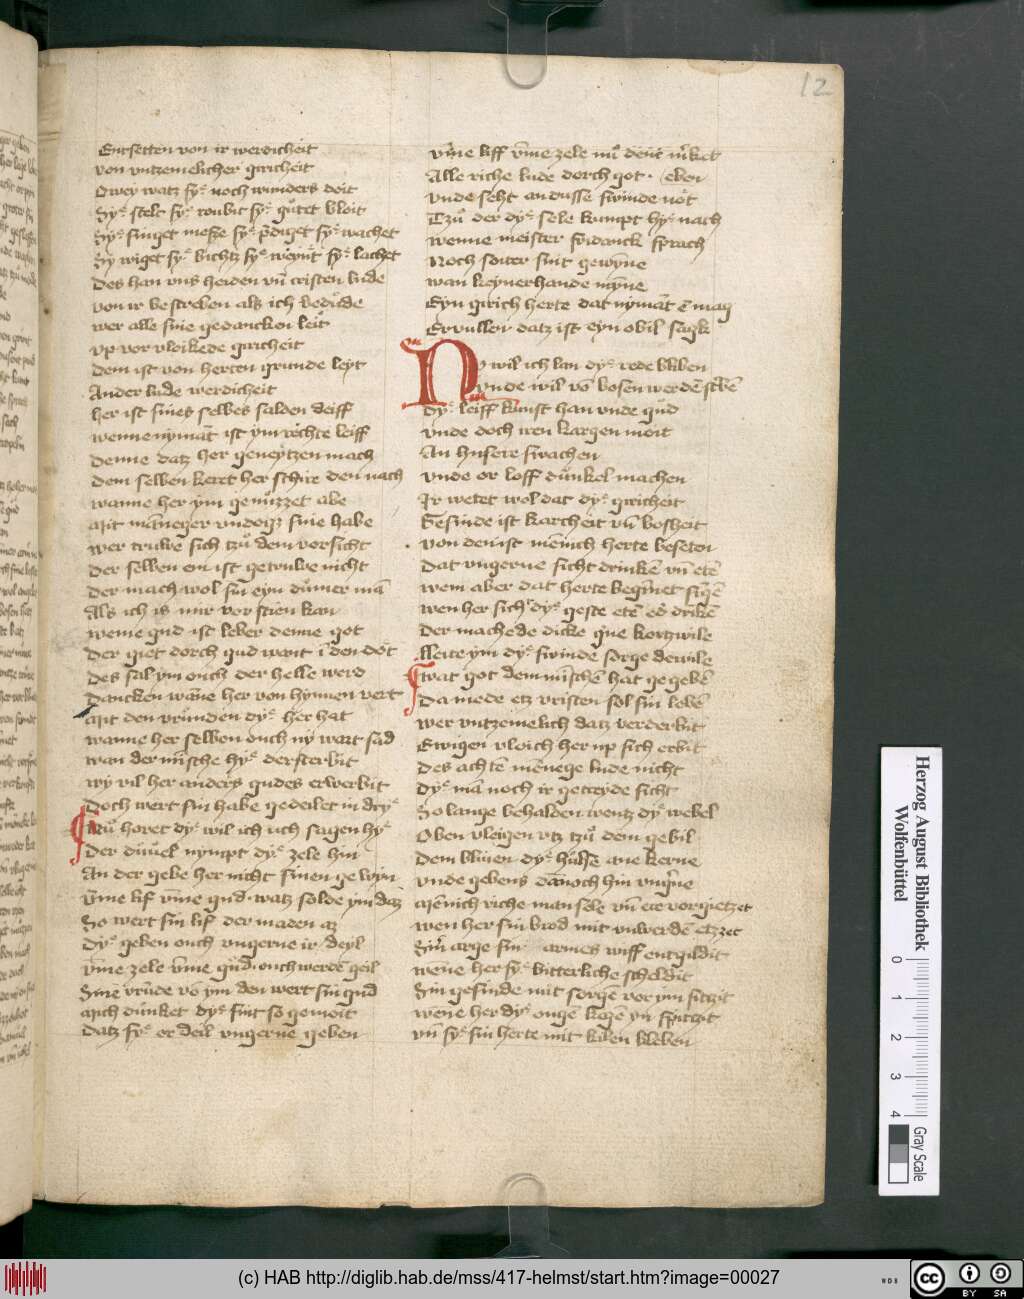 Entsetten von ir werdicheit
von untzemelicher giricheit
Owey watz sye noch wunders doit
Sye stelt sye roubit sye guͦtet bloit
Sye singet messe sye prediget sye wachet
Sy wiget sye bichtz sye weynt sye lachet
Des han uns heiden vn̄ cristen lude
von ir bescreben als ich bedude
wer alle sine gedancken leit
up vor giricheit
Dem ist von herten grunde leyt
Ander lude werdicheit
her ist sines selbes salden deiff
wenne nyman̄t ist ym rechte leiff
Denne datz her geneytzen mach
Dem selben keret her schire den nach
wanne her ym genuͦzzet abe
Mit maneger sine habe
wer truwe sich tzuͦ dem vorsicht
Der selben en ist getruwe nicht
Der mach wol sin eyn dummer mā
Als ich is mir vor stien kan
weme gud ist leber denne got
Der giet dorch gud want ī den dot
Des sal ym ouch der helle werd
Dancken wan̄e her von hynnen vert
Mit den vrunden dye her hat
wanne her selben ouch ny wart sad
wan der mīsche hye dersterbit
wy vil her anders gudes erwerbit
Doch wert sin habe gedeilet in drye
Nuͦ horet dye wil ich uch sagen hye
Der duͦuel nympt dye zele hin
An der gebe her nicht sinen gewyn
vm̄e lif vm̄e gud watz solde ym datz
So wert sin lif der maden az
Dye geben ouch ungerne ir deyl
vm̄e zele vm̄e gud ouch werdē geil
Sine vrūde vō ym den wert sin gud
Mich dunket dye sint so gemoit
Datz sye er deil ungerne geben
vm̄e liff vm̄e zele
Alle riche lude dorch got eben
vnde seht an dusse swinde not
Tzuͦ der dye sele kumpt hye nach
wenne meister fridanck sprach
Noch soiter sint gewyn̄e
wan keynerhande myn̄e
Eyn girich herte dat nyman̄t ē mag
Ervullen datz ist eyn obil sagk
Nv wil ich lan dye rede bliben
vnde wil vō bosen werdē scbē
dye leiff kunst han vnde gud
vnde doch iren kargen moit
An swachen
vnde er loff dunkel machen
Ir wetet wol dat dye giricheit
Gesinde ist karcheit vn̄ bosheit
von den ist mēnich herte beseten
Dat ungerne sicht drinkē vn̄ etē
wem aber dat herte beginnet sigē
wen her sich dye geste etē eď drikē
Der machede dicke gūe kortzwile
lleite ym dye swinde sorge dewile
wat got dem mīschē hat gegebē
Da mede etz vristen sol sin lebē
wer untzemelich datz verderbit
Ewigen vloich her up sich erbit
Des achtē mēnege lude nicht
Dye mā noch ir getreyde sicht
So lange behalden wentz dye webel
Oben vleigen vtz tzuͦ dem gebil
Dem bliuen dye hulse ane kerne
vnde gebens dan̄och hin ungūe
Mēnich riche man sele vn̄ ere vorgietzet
wen her sin brod mit unwerdē etzzet
Sin arge sin armes wiff entgildit
wen̄e her sye bitterliche scheldit
Sin gesinde mit sorgē vor ym sitzit
wen̄e her dye ougē kegē yn spitzit
vn̄ sye sin herte mit kilen kleben
12
Herzog August Bibliothek
Wolfenbüttel
0 1 2 3 4
Gray Scale
(c) HAB http://diglib.hab.de/mss/417-helmst/start.htm?image=00027
WDB
cc BY SA